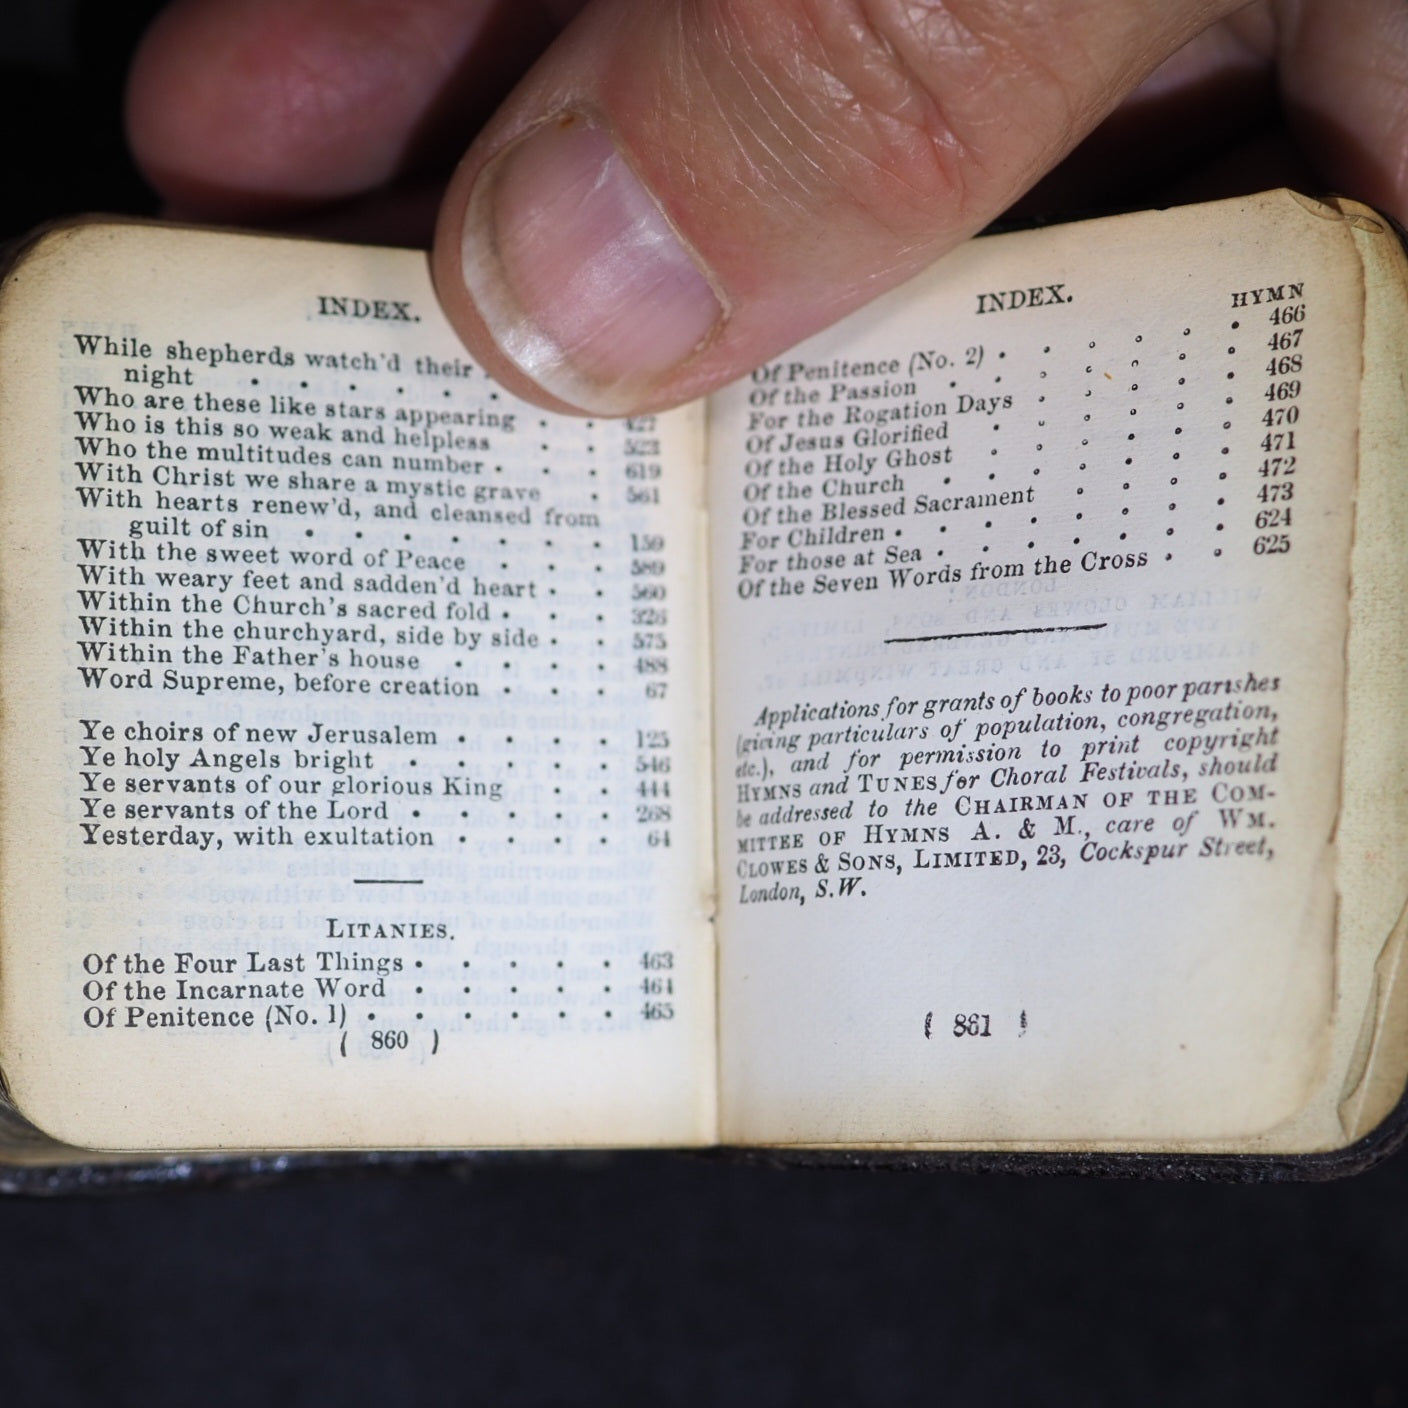 INDEX.
While shepherds watch'd their
night . . . . . .
Who are these like stars appearing . . 427
Who is this so weak and helpless . . 523
Who the multitudes can number . . . 619
With Christ we share a mystic grave . 561
With hearts renew'd, and cleansed from
guilt of sin . . . . . . . 159
With the sweet word of Peace . . . 589
With weary feet and sadden'd heart . . 560
Within the Church's sacred fold . . . 326
Within the churchyard, side by side . . 575
Within the Father's house . . . . 488
Word Supreme, before creation . . . 67
Ye choirs of new Jerusalem . . . . 125
Ye holy Angels bright . . . . . 546
Ye servants of our glorious King . . 444
Ye servants of the Lord . . . . . 268
Yesterday, with exultation . . . . 64
LITANIES.
Of the Four Last Things . . . . . 463
Of the Incarnate Word . . . . . 464
Of Penitence (No. 1) . . . . . . 465
( 860 )
INDEX.
HYMN
Of Penitence (No. 2) . . . . . . 466
Of the Passion . . . . . . . 467
For the Rogation Days . . . . . 468
Of Jesus Glorified . . . . . . 469
Of the Holy Ghost . . . . . . 470
Of the Church . . . . . . . 471
Of the Blessed Sacrament . . . . 472
For Children . . . . . . . . 473
For those at Sea . . . . . . . 624
Of the Seven Words from the Cross . . 625
Applications for grants of books to poor parishes
(giving particulars of population, congregation,
etc.), and for permission to print copyright
HYMNS and TUNES for Choral Festivals, should
be addressed to the CHAIRMAN OF THE COM-
MITTEE OF HYMNS A. & M., care of WM.
CLOWES & SONS, LIMITED, 23, Cockspur Street,
London, S.W.
( 861 )